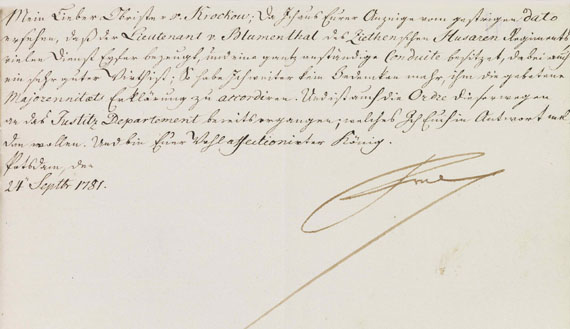 Mein Lieber Obrister v. Krockow; Da Ich aus Eurer Anzeige vom gestrigen dato
ersehen, daß der Lieutenant v. Blumenthal des Ziethenschen Husaren Regiments
vielen Dienst Eyfer bezeugt, und eine gantz anständige Conduite besitzet, dabei auch
ein sehr guter Wirth ist; So habe Ich weiter kein Bedenken mehr, ihm die gebetene
Majorennitäts Erklärung zu accordiren. Und ist auch die Ordre dieserwegen
an das Justitz Departement bereits ergangen; welches Ich Euch in Antwort mel
den wollen. Und bin Euer Wohl affectionirter König.
Potsdam, den
24 Septbr 1781.